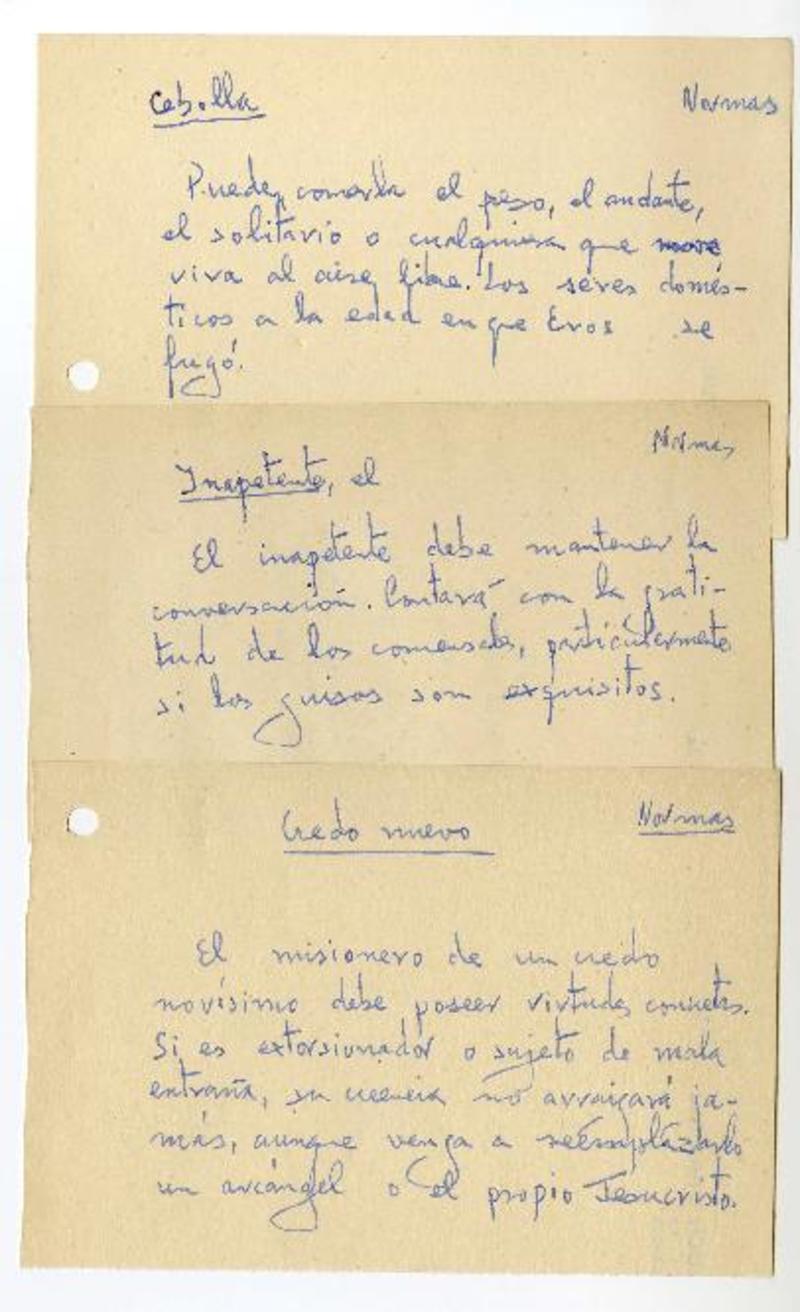 Cebolla
Normas
Pueden comerla el peso, el andante,
el solitario o cualquiera que
viva al aire libre. Los seres domés-
ticos a la edad en que Eros se
fugó.
Normas
Inapetente, el
El inapetente debe mantener la
conversación. Contará con la grati-
tud de los comensales, particularmente
si los guisos son exquisitos.
Credo nuevo
Normas
El misionero de un credo
novísimo debe poseer virtudes concretas.
Si es extorsionador o sujeto de mala
entraña, su creencia no arraigará ja-
más, aunque venga a reemplazarlo
un arcángel o el propio Jesucristo.